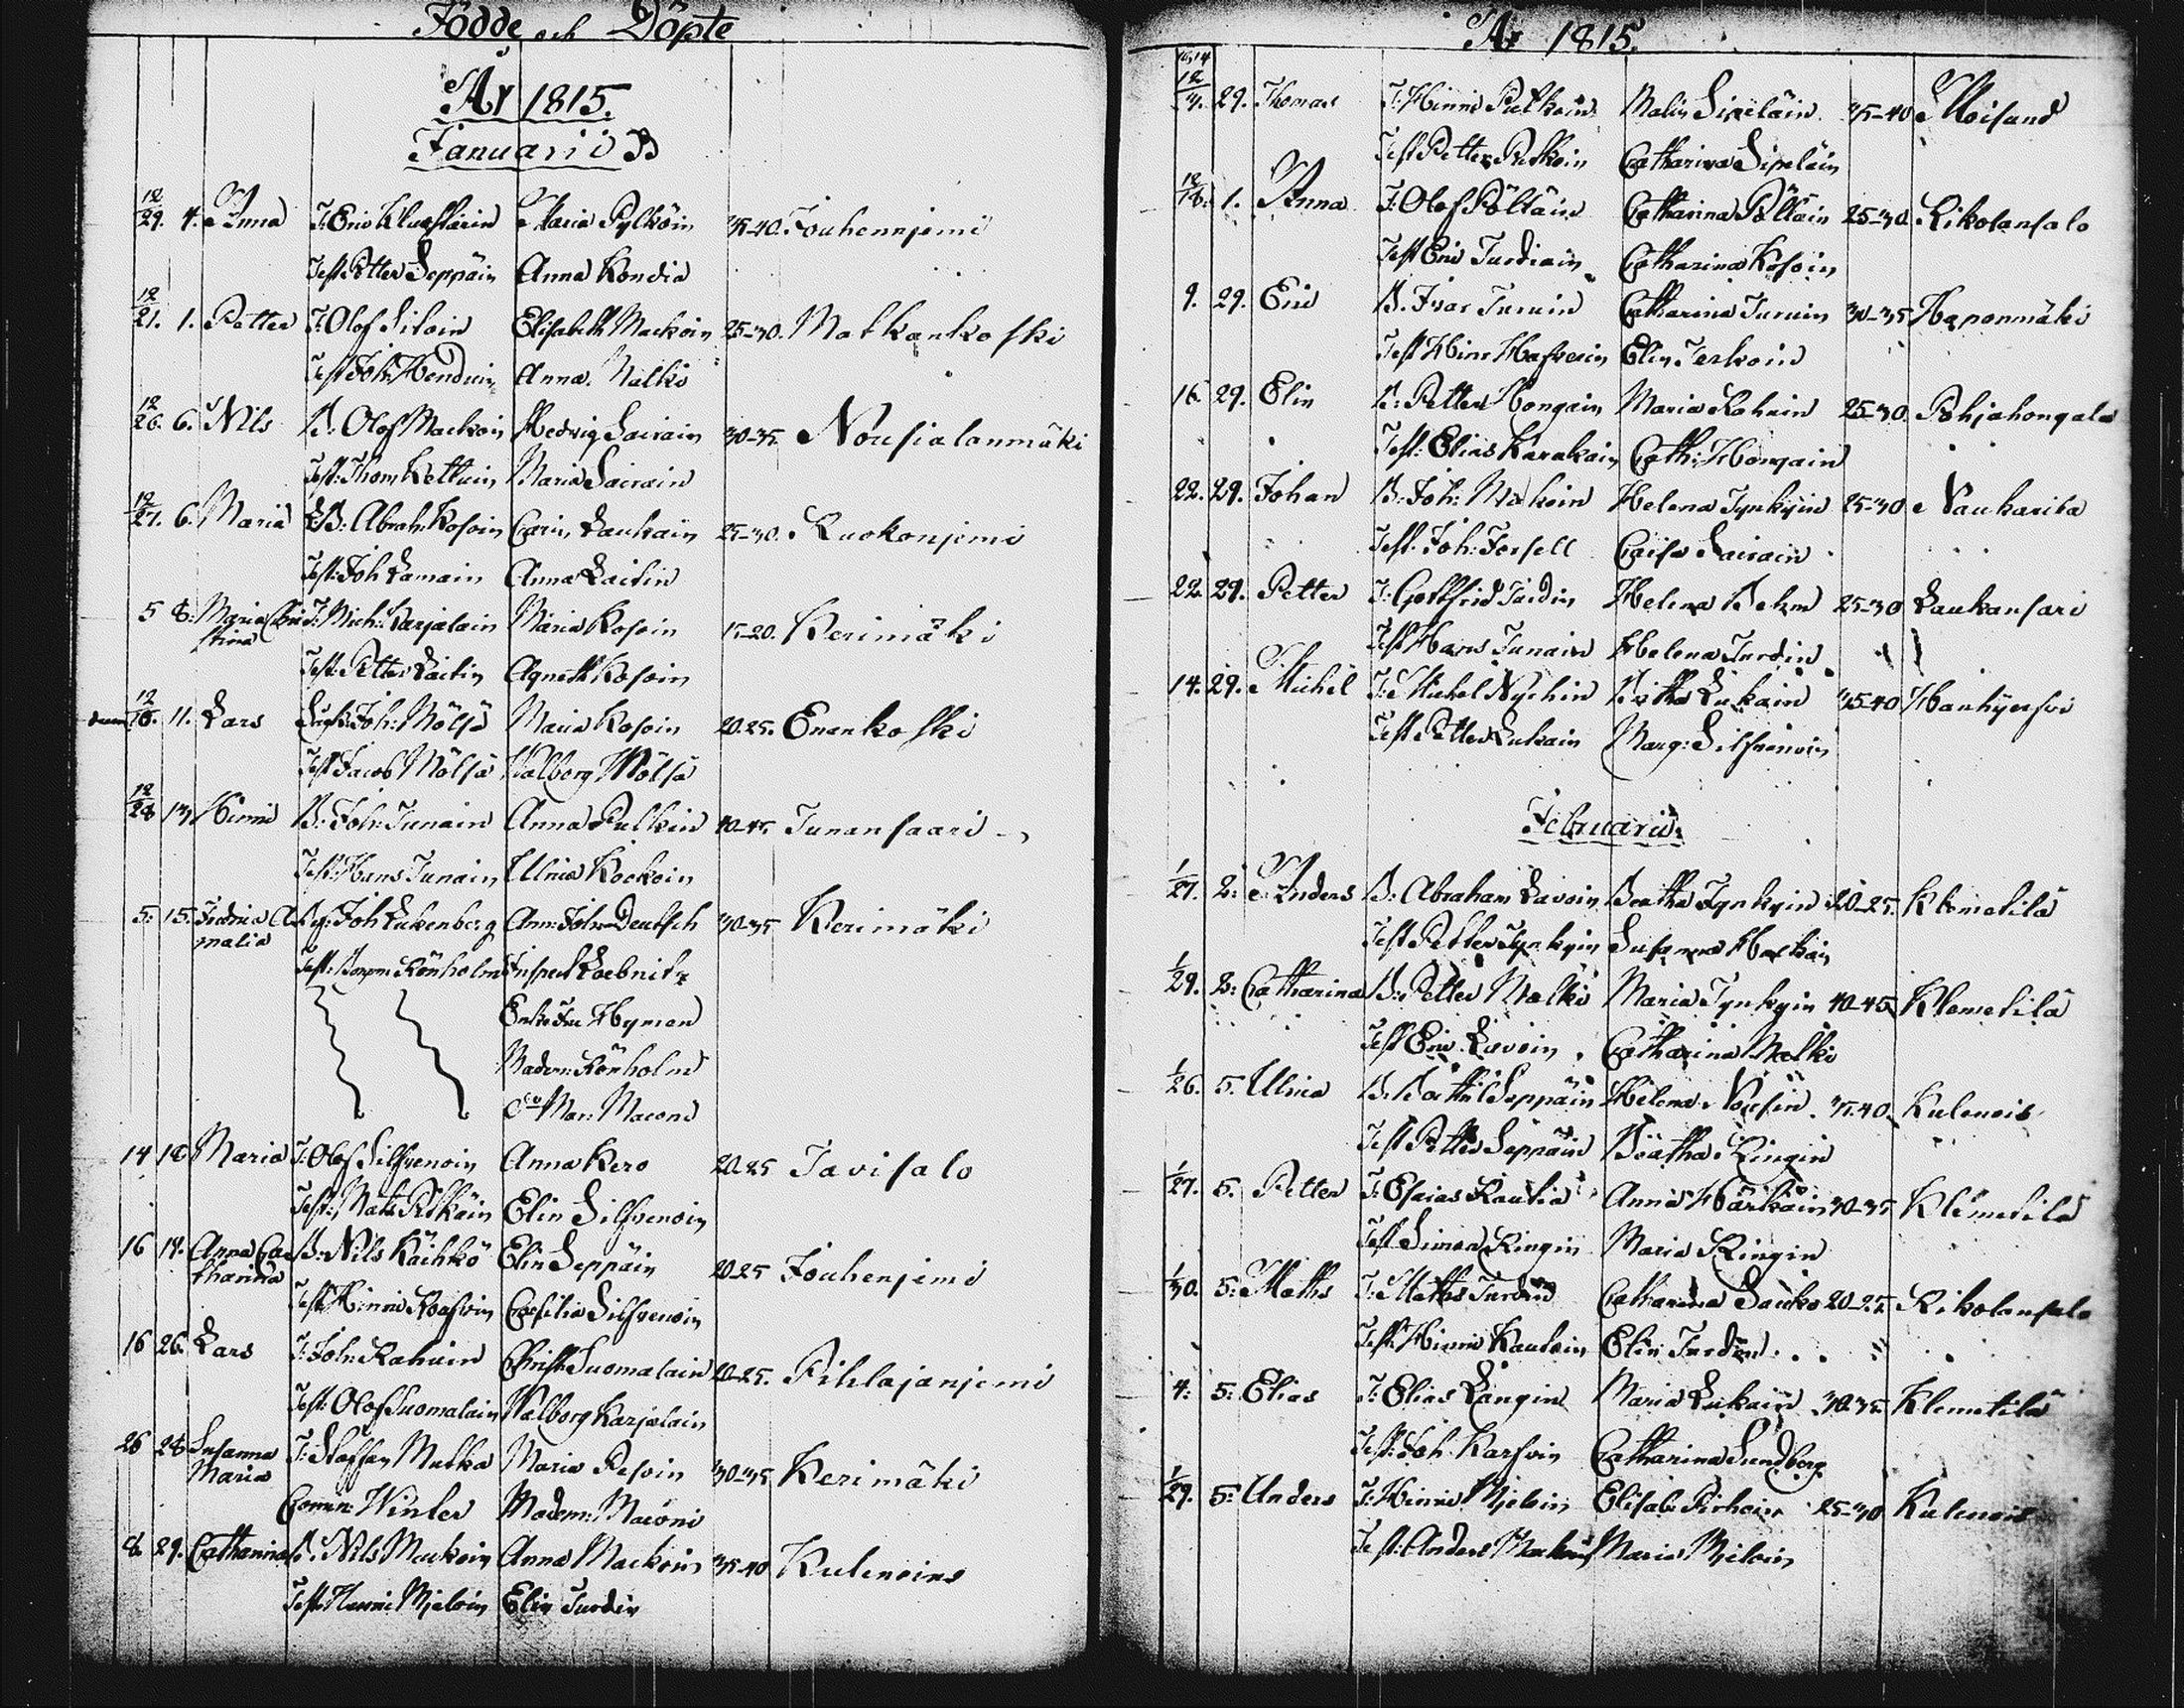 Födde och Döpte
År 1815.
Januarii
12/29. 4. Anna T: Eric Maria Pylköin 35-40. Jouhennjemi
Test Petter Seppäin Anna Kondia
12/21. 1. Petter T: Olof Siloin Elisabeth Mackoin 25-30. Matkankoski
Test Joh: Anna Malki
12/26. 6. Nils B: Olof Mackoin Hedvig Sairain 30-35. Nousialanmäki
Test: Thom Kettuin Maria Sairain
12/27. 6. Maria B: Abrah: Kosoin Carin Laukain 25-30. Ruokonjemi
Test: Joh Lamain Anna Laitin
5 8. Maria Chri T: Mich: Karjalain Maria Kosoin 15-20. Kerimäki
stina
Test: Petter Laitin Agneth Kosoin
12/18. 11. Lars Joh: Mölsä Maria Kosoin 20-25. Enonkoski
Test Jacob Mölsä Walborg Mölsä
12/28 13 Hinric B: Joh: Tunain Anna Pulkin 40-45 Tunansaari
Test: Hans Tunain Ulrica Kockoin
5: 15. Fredrica A Joh Lukenberg Ann: Deutsch 30-35 Kerimäki
malia
Test: Rönholm Inspect Loebnitz
Enke Fru Hyman
Madem: Rönholm
Mar: Maconi
14 18 Maria T: Olof Silfvenoin Anna Kero 20-25 Tavisalo
Test: Mats Pitkäin Elin Silfvenoin
16 18. Anna Ca B: Nils Käihkö Elin Seppäin 20-25 Jouhenjemi
tharina
Test: Hinric Koasvin Caesilia Silfvenoin
16 26. Lars T: Joh: Rahuin Christ: Suomalain 20-25. Pihlajanjemi
Test: Olof Suomalain Walborg Karjalain
26 28 Susanna T: Staffan Mutka Maria Pesoin 30-35 Kerimäki
Maria
Comin: Winter Madem: Maconi
8. 29. Catharina B: Nils Mackoin Anna Mackoin 35-40 Kulenoine
Test: Henric Mjeloin Elin Turdin
År 1815.
1814
12/3. 29. Thomas T: Hinric Putkoin Malin Sipeläin 35-40 Moisand
Test Petter Putkoin Catharina Sipeläin
12/18. 1. Anna T: Olof Pöllain Catharina Pöllain 25-30. Rikolansalo
Test Eric Turdiain Catharina Kosoin
9. 29. Eric B. Ivar Turuin Catharina Turuin 30-35 Haponmäki
Test Hinr Elin Terkoin
16 29. Elin B: Petter Hongain Maria Rahuin 25-30. Pohjahongala
Test: Elias Karakain Cath: Hongain
22. 29. Johan B: Joh: Makoin Helena Tynkyin 25-30 Naukarila
Test. Joh: Forsell Caisa Sairain
22. 29. Petter T: Gottfrid Helena 25-30 Laukansari
Test Hans Tunain Helena Turdin
14. 29. Michel T: Michel Nychin Lukain 35-40 Hanhijersvi
Test Petter Lukain Marg: Silfvenoin
Februarii
1/27. 2: Anders B: Abraham Lavoin Beatha Tynkyin 20-25. Klemetilä
Test Petter Tynkyin Susanna
1/29. 2: Catharina B: Petter Malki Maria Tynkyin 40-45 Klemetilä
Test Eric Lavoin Catharina Malki
1/26. 5. Ulrica B. Bertil Seppäin Helena Nousin 35-40. Kulenois
Test Petter Seppäin Beatha Ringin
1/27. 5. Petter T: Esaias Rautia Anna Härkäin 30-35 Klemetilä
Test Simon Ringin Maria Ringin
1/30. 5: Maths T: Maths Turdin Catharina Sauko 20-25 Rikolansalo
Test: Hinric Kauloin Elin Turdin
4: 5: Elias T: Elias Langin Maria Lukain 30-35 Klemetilä
Test: Joh: Karsvin Catharina Sundberg
1/29. 5: Anders T: Hinric Mjeloin Elisab: Pirhoin 25-30 Kulenois
Test: Anders Maria Mjeloin